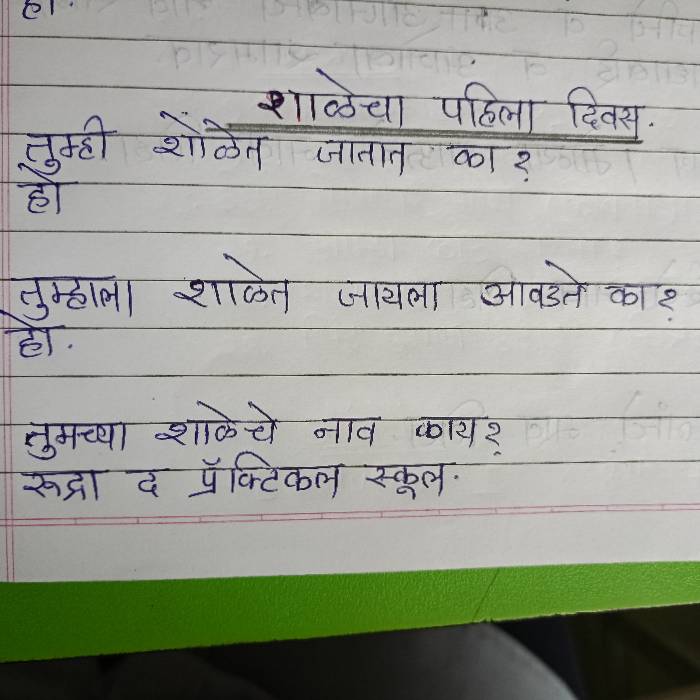 हो.
शाळेचा पहिला दिवस.
तुम्ही शाळेत जातात का?
हो
तुम्हाला शाळेत जायला आवडते का?
हो.
तुमच्या शाळेचे नाव काय?
रूद्रा द प्रॅक्टिकल स्कूल.